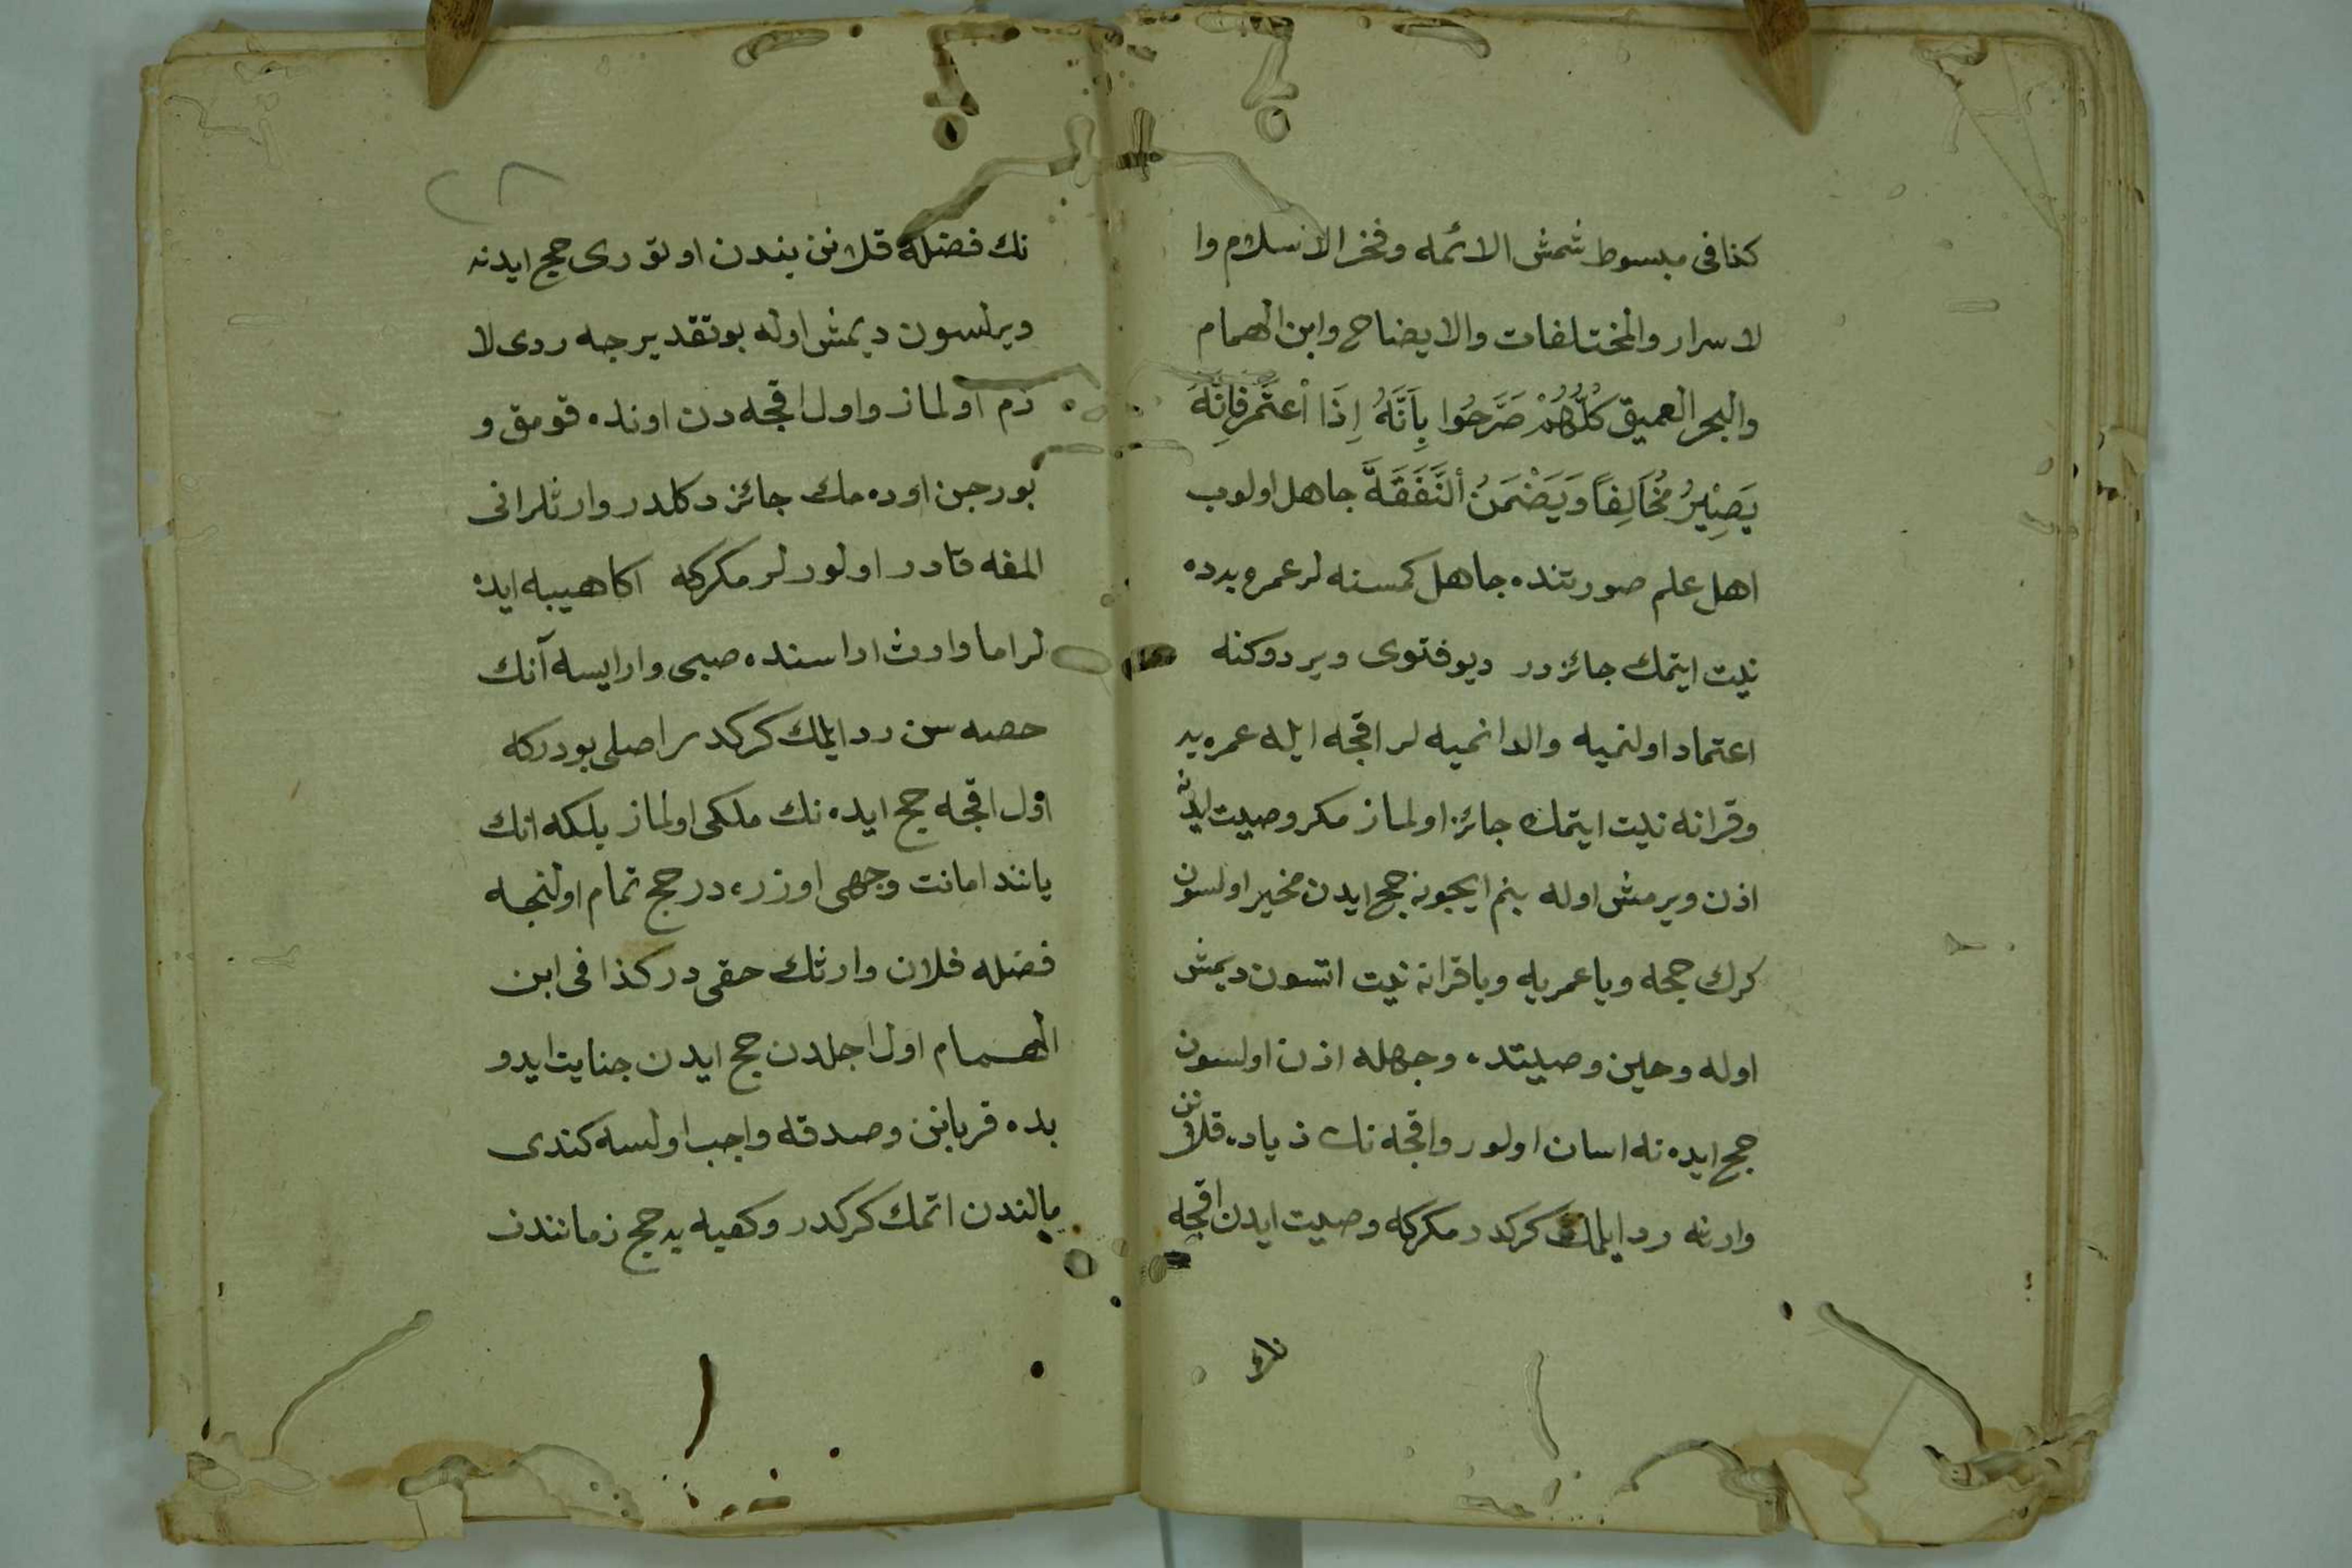 كذا فى مبسوط شمش الائمه وفخر الاسلام وا
لاسرار والمختلفات والايضاح وابن الهمام
والبحر العميق كُلُّهُمْ صَرَّحُوا بِاَنَّهُ اِذَا اْعتَمَرَ فَاِنَّهُ
يَصِيْرُ مُخَالِفاً وَيَضْمَنُ اَلنَّفَقَةَ جاهل اولوب
اهل علم صورتنده جاهل كمسنه لر عمره يرده
نيت ايتمك جائز در ديو فتوى ويردوكنه
اعتماد اولنميه والدانميه لر اقجه ايله عمره يه
وقرانه نيت ايتمك جائز اولماز مكر وصيت ايدنه
اذن ويرمش اوله بنم ايچون حج ايدن مخير اولسون
كرك حجه ويا عمريه ويا قرانه نيت اتسون ديمش
اوله وحين وصيتده وجهله اذن اولسون
حج ايده نه اسان اولور واقجه نك زياده قلانن
وارثه رد ايلمك كركدر مكركه وصيت ايدن اقجه
نك
نك فضله قلانن بندن اوتورى حج ايدنه
ويرلسون ديمش اوله بوتقديرجه ردى لا
زم اولماز واول اقجه دن اونده قومق و
بورجن اوده مك جائز دكلدر وارثلر انى
المغه قادر اولورلر مكركه اكا هبيه ايده
لر اما وارث اراسنده صبى وار ايسه آنك
حصه سن رد ايلمك كركدر اصلى بودركه
اول اقجه حج ايده نك ملكى اولماز بلكه انك
ياننده امانت وجهى اوزره در حج تمام اولنجه
فضله قلان وارثك حقى در كذا فى ابن
الهمام اول اجلدن حج ايدن جنايت ايدو
بده قربانن وصدقه واجب اولسه كندى
مالندن اتمك كركدر وكعبه يه حج زمانندن